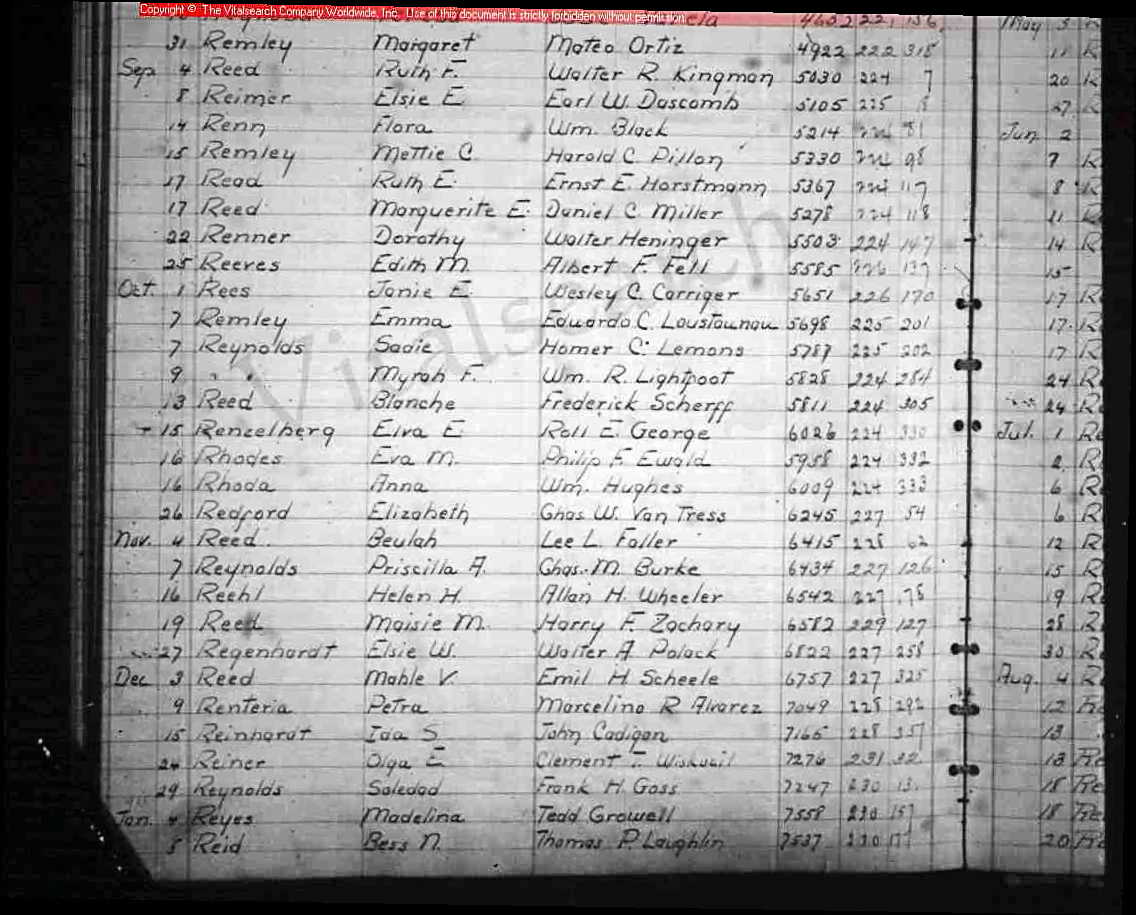 Copyright © The Vitalsearch Company Worldwide, Inc. Use of this document is strictly forbidden without permission
4652 221 156 May 5
31 Remley Margaret Mateo Ortiz 4922 222 318 11 R
Sep 4 Reed Ruth F. Walter R. Kingman 5030 224 7 20 R
8 Reimer Elsie E. Earl W. Dascomb 5105 225 8 27 R
14 Renn Flora Wm. Black 5214 81 Jun 2
15 Remley Mettie C. Harold C. Dillon 5330 98 7 R
17 Read Ruth E. Ernst E. Horstmann 5367 117 8 R
17 Reed Marguerite E. Daniel C. Miller 5278 224 118 11 R
22 Renner Dorothy Walter Heninger 5503 224 147 14 R
25 Reeves Edith M. Albert F. Fell 5585 226 137 15
Oct. 1 Rees Janie E. Wesley C. Carriger 5651 226 170 17 R
7 Remley Emma Eduardo C. Loustaunau 5698 225 201 17 R
7 Reynolds Sadie Homer C. Lemons 5787 225 202 17 R
9 " " Myrah F. Wm. R. Lightfoot 5828 224 284 24 R
13 Reed Blanche Frederick Scherff 5811 224 305 24 R
15 Rencelberg Elva E. Roll E. George 6026 224 330 Jul. 1 Re
16 Rhodes Eva M. Philip F. Ewald 5958 224 332 2 R
16 Rhoda Anna Wm. Hughes 6009 224 333 6 R
26 Redford Elizabeth Chas W. Van Tress 6245 227 54 6 R
Nov. 4 Reed Beulah Lee L. Faller 6415 228 62 12 R
7 Reynolds Priscilla A. Chas. M. Burke 6434 227 126 15 R
16 Reehl Helen H. Allan H. Wheeler 6542 227 78 19 Re
19 Reed Maisie M. Harry F. Zachary 6582 229 127 28 R
27 Regenhardt Elsie W. Walter A. Polack 6822 227 258 30 Re
Dec 3 Reed Mable V. Emil H. Scheele 6757 227 325 Aug. 4 R
9 Renteria Petra Marcelino R Alvarez 7049 228 292 12 Re
15 Reinhardt Ida S John Cadigan 7165 228 357 13
24 Reiner Olga E Clement T. 7276 231 32 18 Re
29 Reynolds Soledad Frank H. Goss 7247 230 13 18 Re
Jan. 4 Reyes Madelina Tedd Growell 7558 230 157 18 Re
5 Reid Bess N. Thomas P. Laughlin 7537 230 20 Re
Vitalsearch